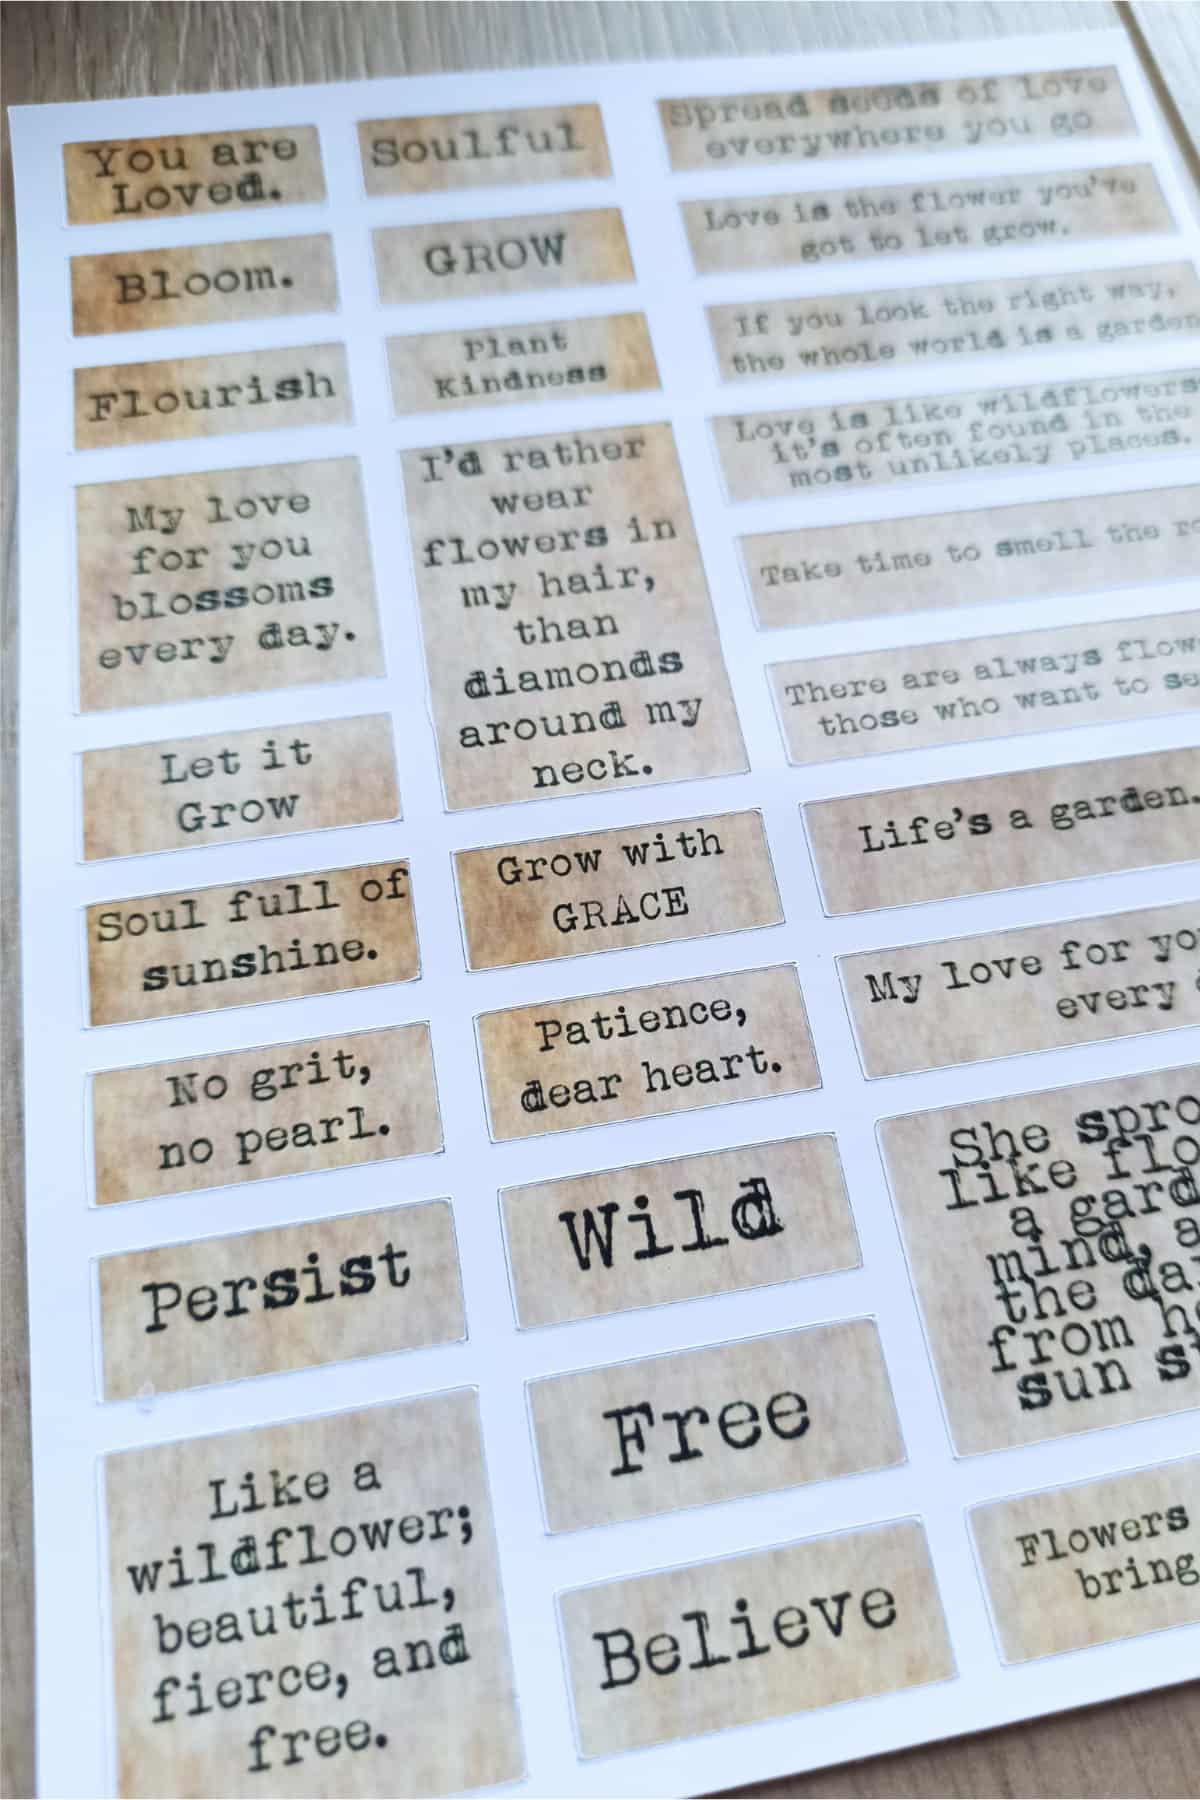 You are
Loved.
Bloom.
Flourish
My love
for you
blossoms
every day.
Let it
Grow
Soul full of
sunshine.
No grit,
no pearl.
Persist
Like a
wildflower;
beautiful,
fierce, and
free.
Soulful
GROW
Plant
Kindness
I'd rather
wear
flowers in
my hair,
than
diamonds
around my
neck.
Grow with
GRACE
Patience,
dear heart.
Wild
Free
Believe
Spread seeds of love
everywhere you go
Love is the flower you've
got to let grow.
If you look the right way,
the whole world is a garden
Love is like wildflowers
it's often found in the
most unlikely places.
Take time to smell the
There are always
those who want to
Life's a garden.
My love for
every
She
like
a
mind,
the
from
sun
Flowers
bring